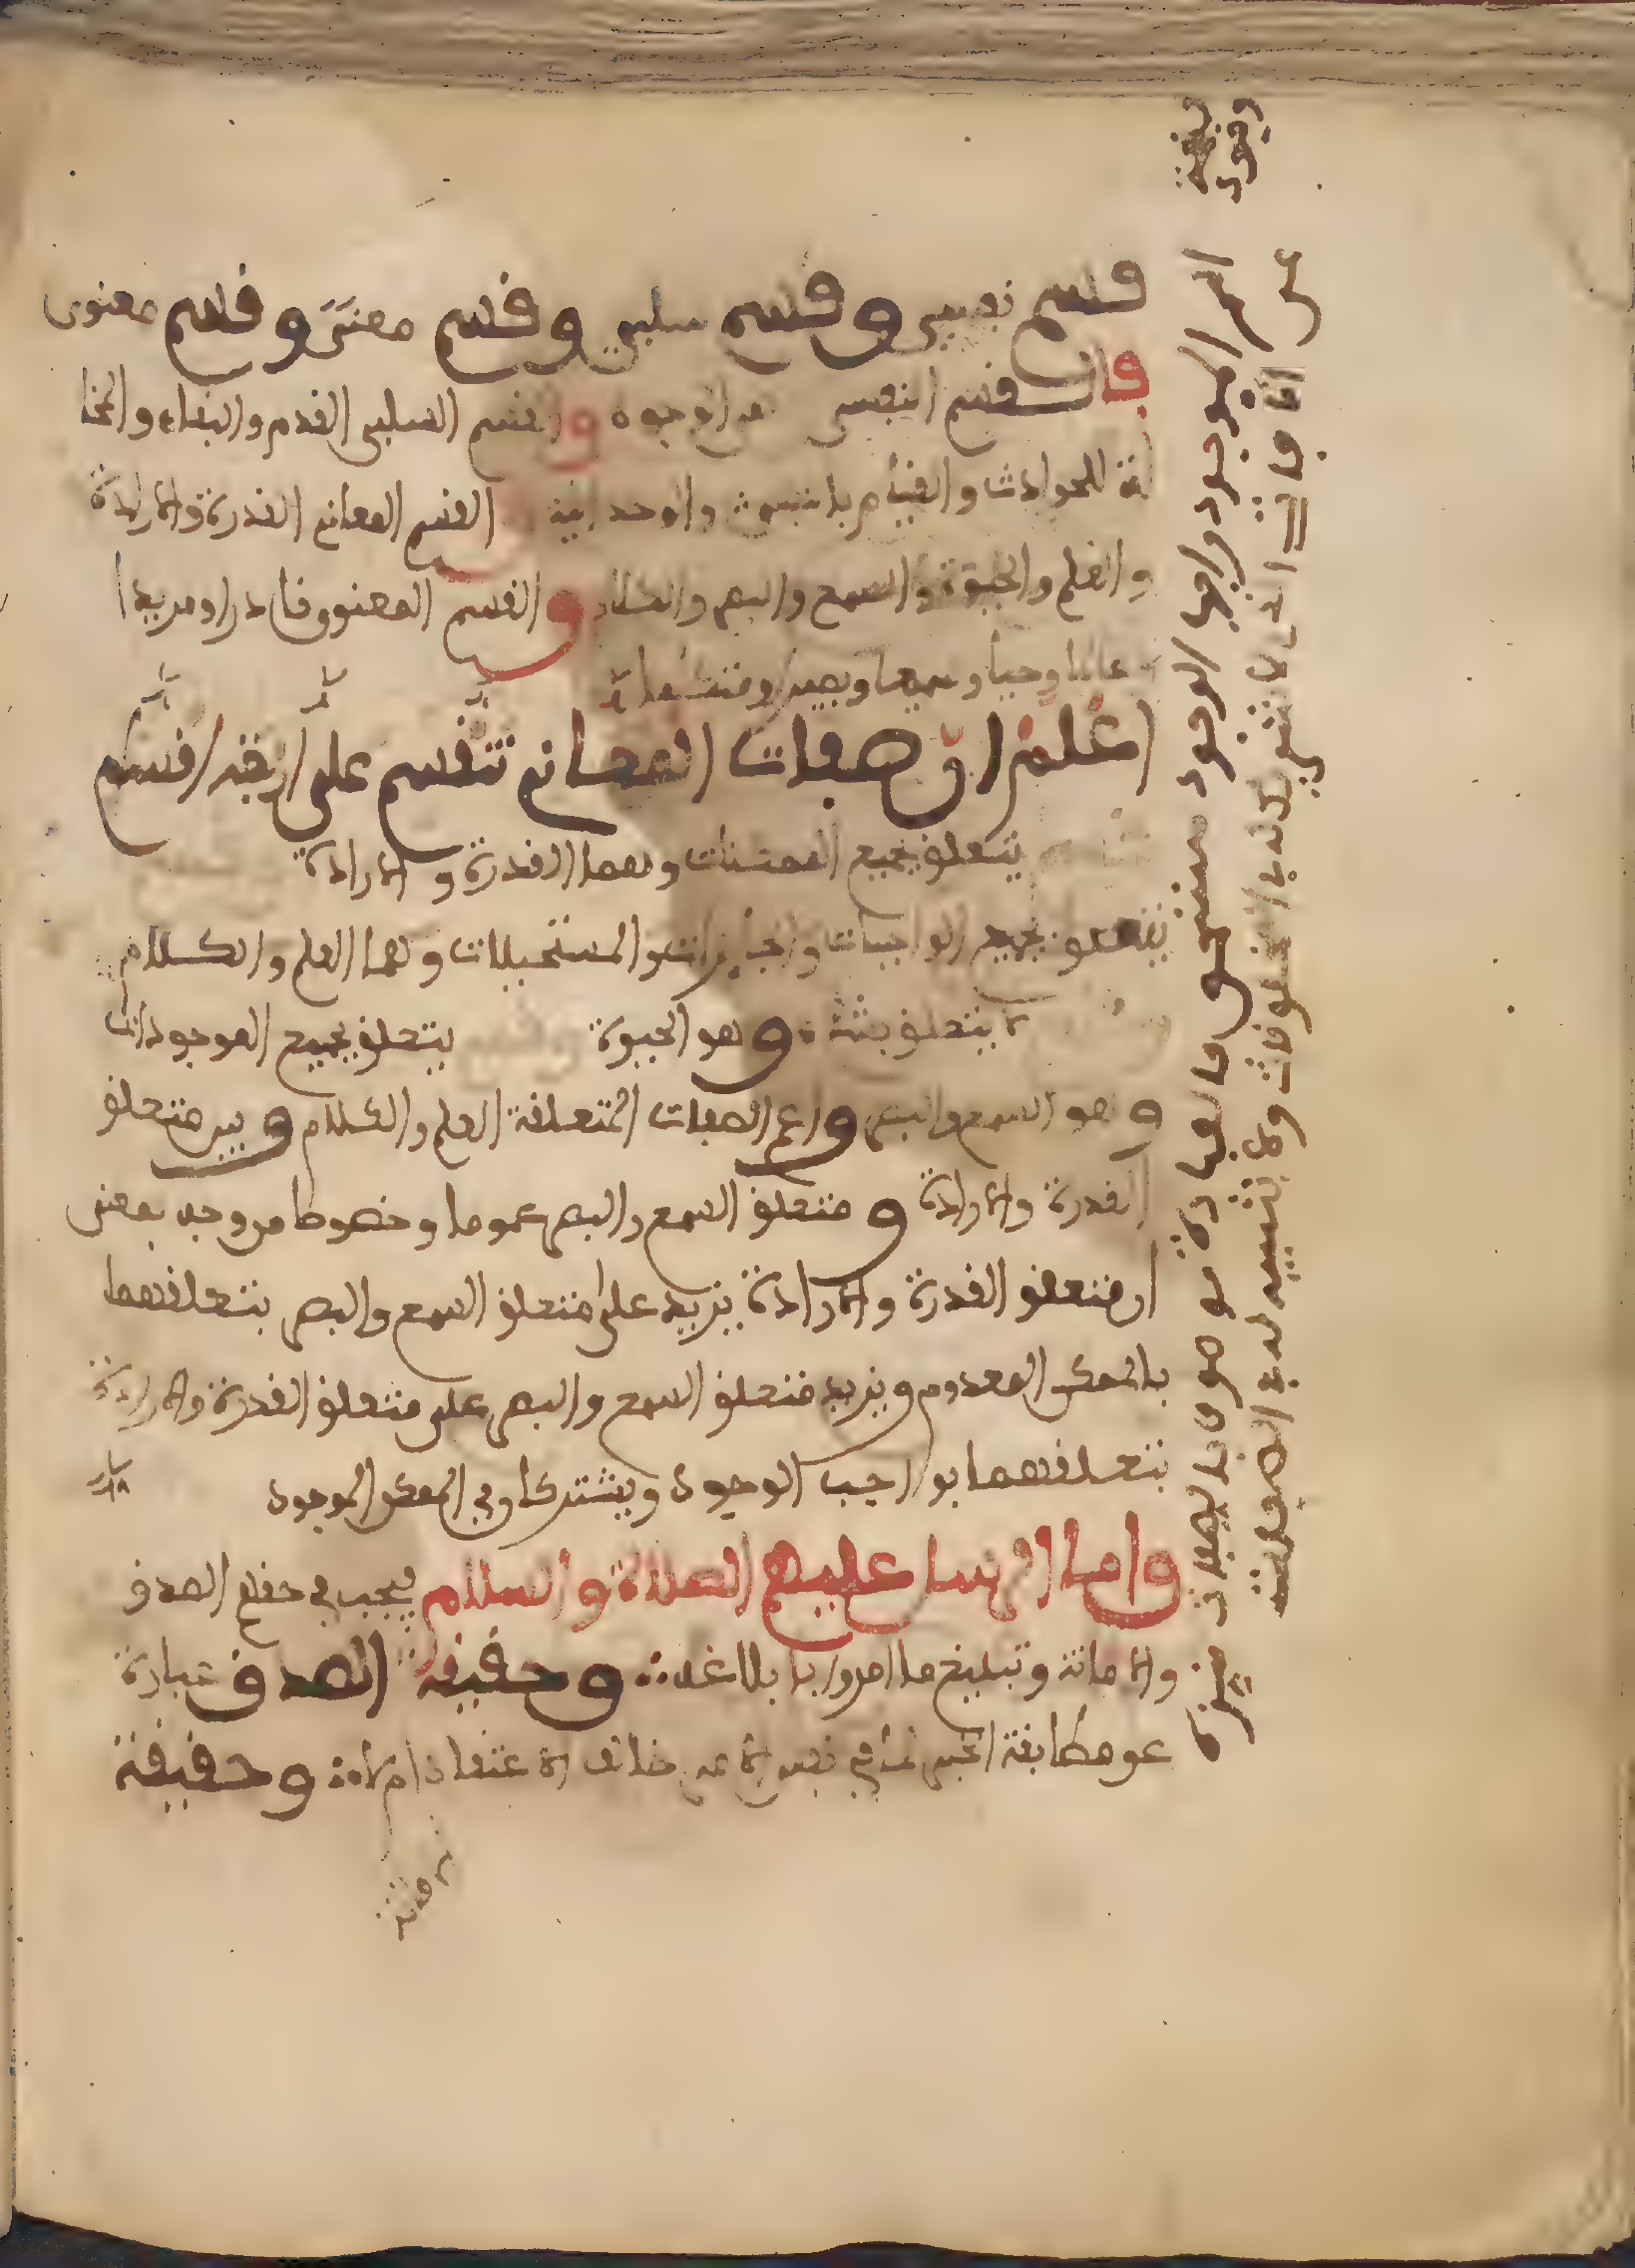 قسم نفسي وقسم سلبي وقسم معنى وقسم معنوى
فان قسم النفسى هو الوجود والقسم السلبى القدم والبقاء والمخا
لفة للحوادث والقيام بالنفس والوحدانية القسم المعاني القدرة والارادة
والعلم والحيوة والسمع والبصر والكلام والقسم المعنوى قادرا ومريدا
عالما وحيا وسميعا وبصيرا ومتكلما
اعلم ان صفات المعاني تنقسم على اربعة اقسام
يتعلق بجميع الممكنات وهما القدرة والارادة
يتعلق بجميع الواجبات والجائزات والمستحيلات وهما العلم والكلام
لا يتعلق بشىء وهو الحيوة يتعلق بجميع الموجودات
وهو السمع والبصر واعم الصفات المتعلقة العلم والكلام وبين متعلق
القدرة والارادة ومتعلق السمع والبصر عموما وخصوصا من وجه بمعنى
ان متعلق القدرة والارادة يزيد على متعلق السمع والبصر بتعلقهما
بالممكن المعدوم ويزيد متعلق السمع والبصر على متعلق القدرة والارادة
بتعلقهما بواجب الوجود ويشتركا في الممكن الموجود
واما الرسل عليهم الصلاة والسلام فيجب في حقهم الصدق
والامانة وتبليغ ما امروا بابلاغه وحقيقة الصدق عبارة
عن مطابقة الخبر لما في نفس الامر خالف الاعتقاد ام لا وحقيقة
الموجود واجب الوجود مستحق العبادة موصوف بالصفات منزه
عن الذى لا شريك له في المخلوقات ولا شبيه له في الصفات